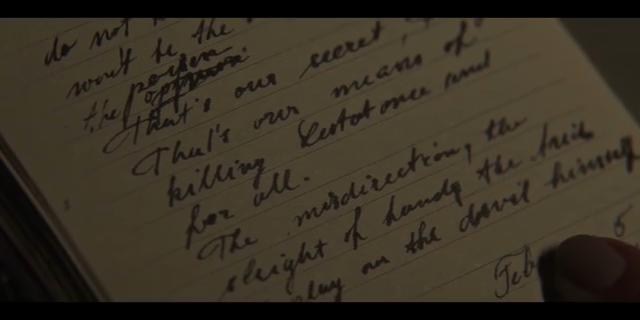 do not
won't be the
the person
opprman
That's our secret,
That's our means of
killing Lestat once and
for all.
The misdirection, the
sleight of hand, the trick
play on the devil himself
Feb 6